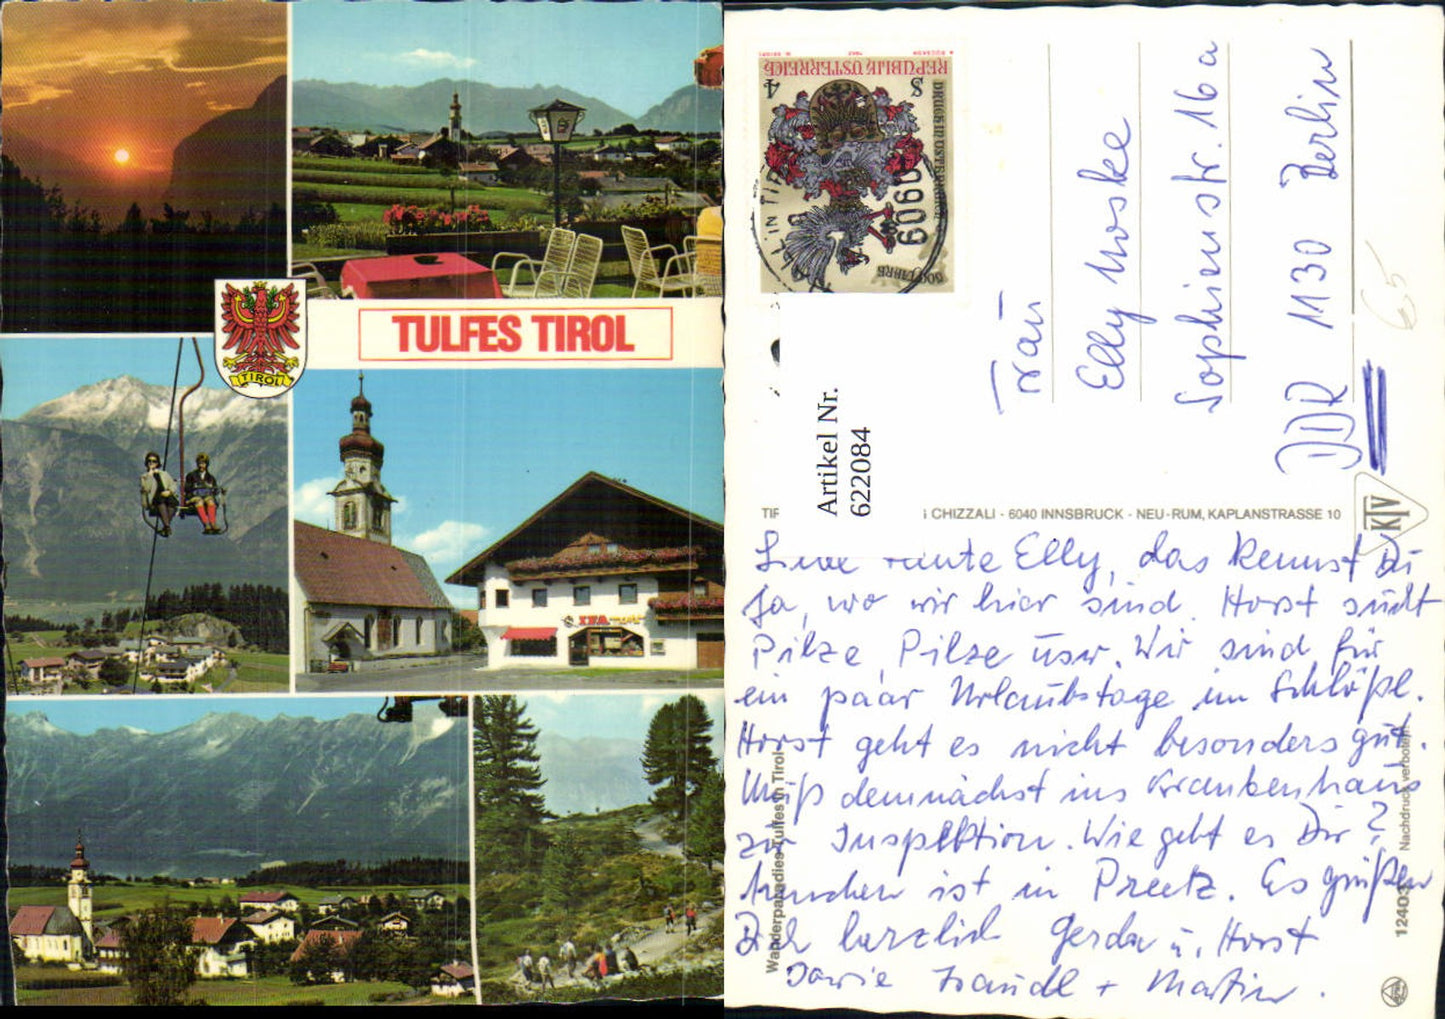 TIROL
TULFES TIROL
REPUBLIK ÖSTERREICH
S 4
DRUCK IN ÖSTERREICH
600 JAHRE
6060
HALL IN TIROL
Artikel Nr.
622084
Frau
Elly Moske
Sophienstr. 16a
1130 Berlin
DDR
CHIZZALI - 6040 INNSBRUCK - NEU-RUM, KAPLANSTRASSE 10
KTV
Liebe Tante Elly, das kennst Du
ja, wo wir hier sind. Horst sucht
Pilze, Pilze usw. Wir sind für
ein paar Urlaubstage im Schlößl.
Horst geht es nicht besonders gut.
Muß demnächst ins Krankenhaus
zur Inspektion. Wie geht es Dir?
ist in Preetz. Es grüßen
Dich herzlich Gerda u. Horst
sowie Traudl + Martin.
Wanderparadies Tulfes in Tirol
12403
Nachdruck verboten